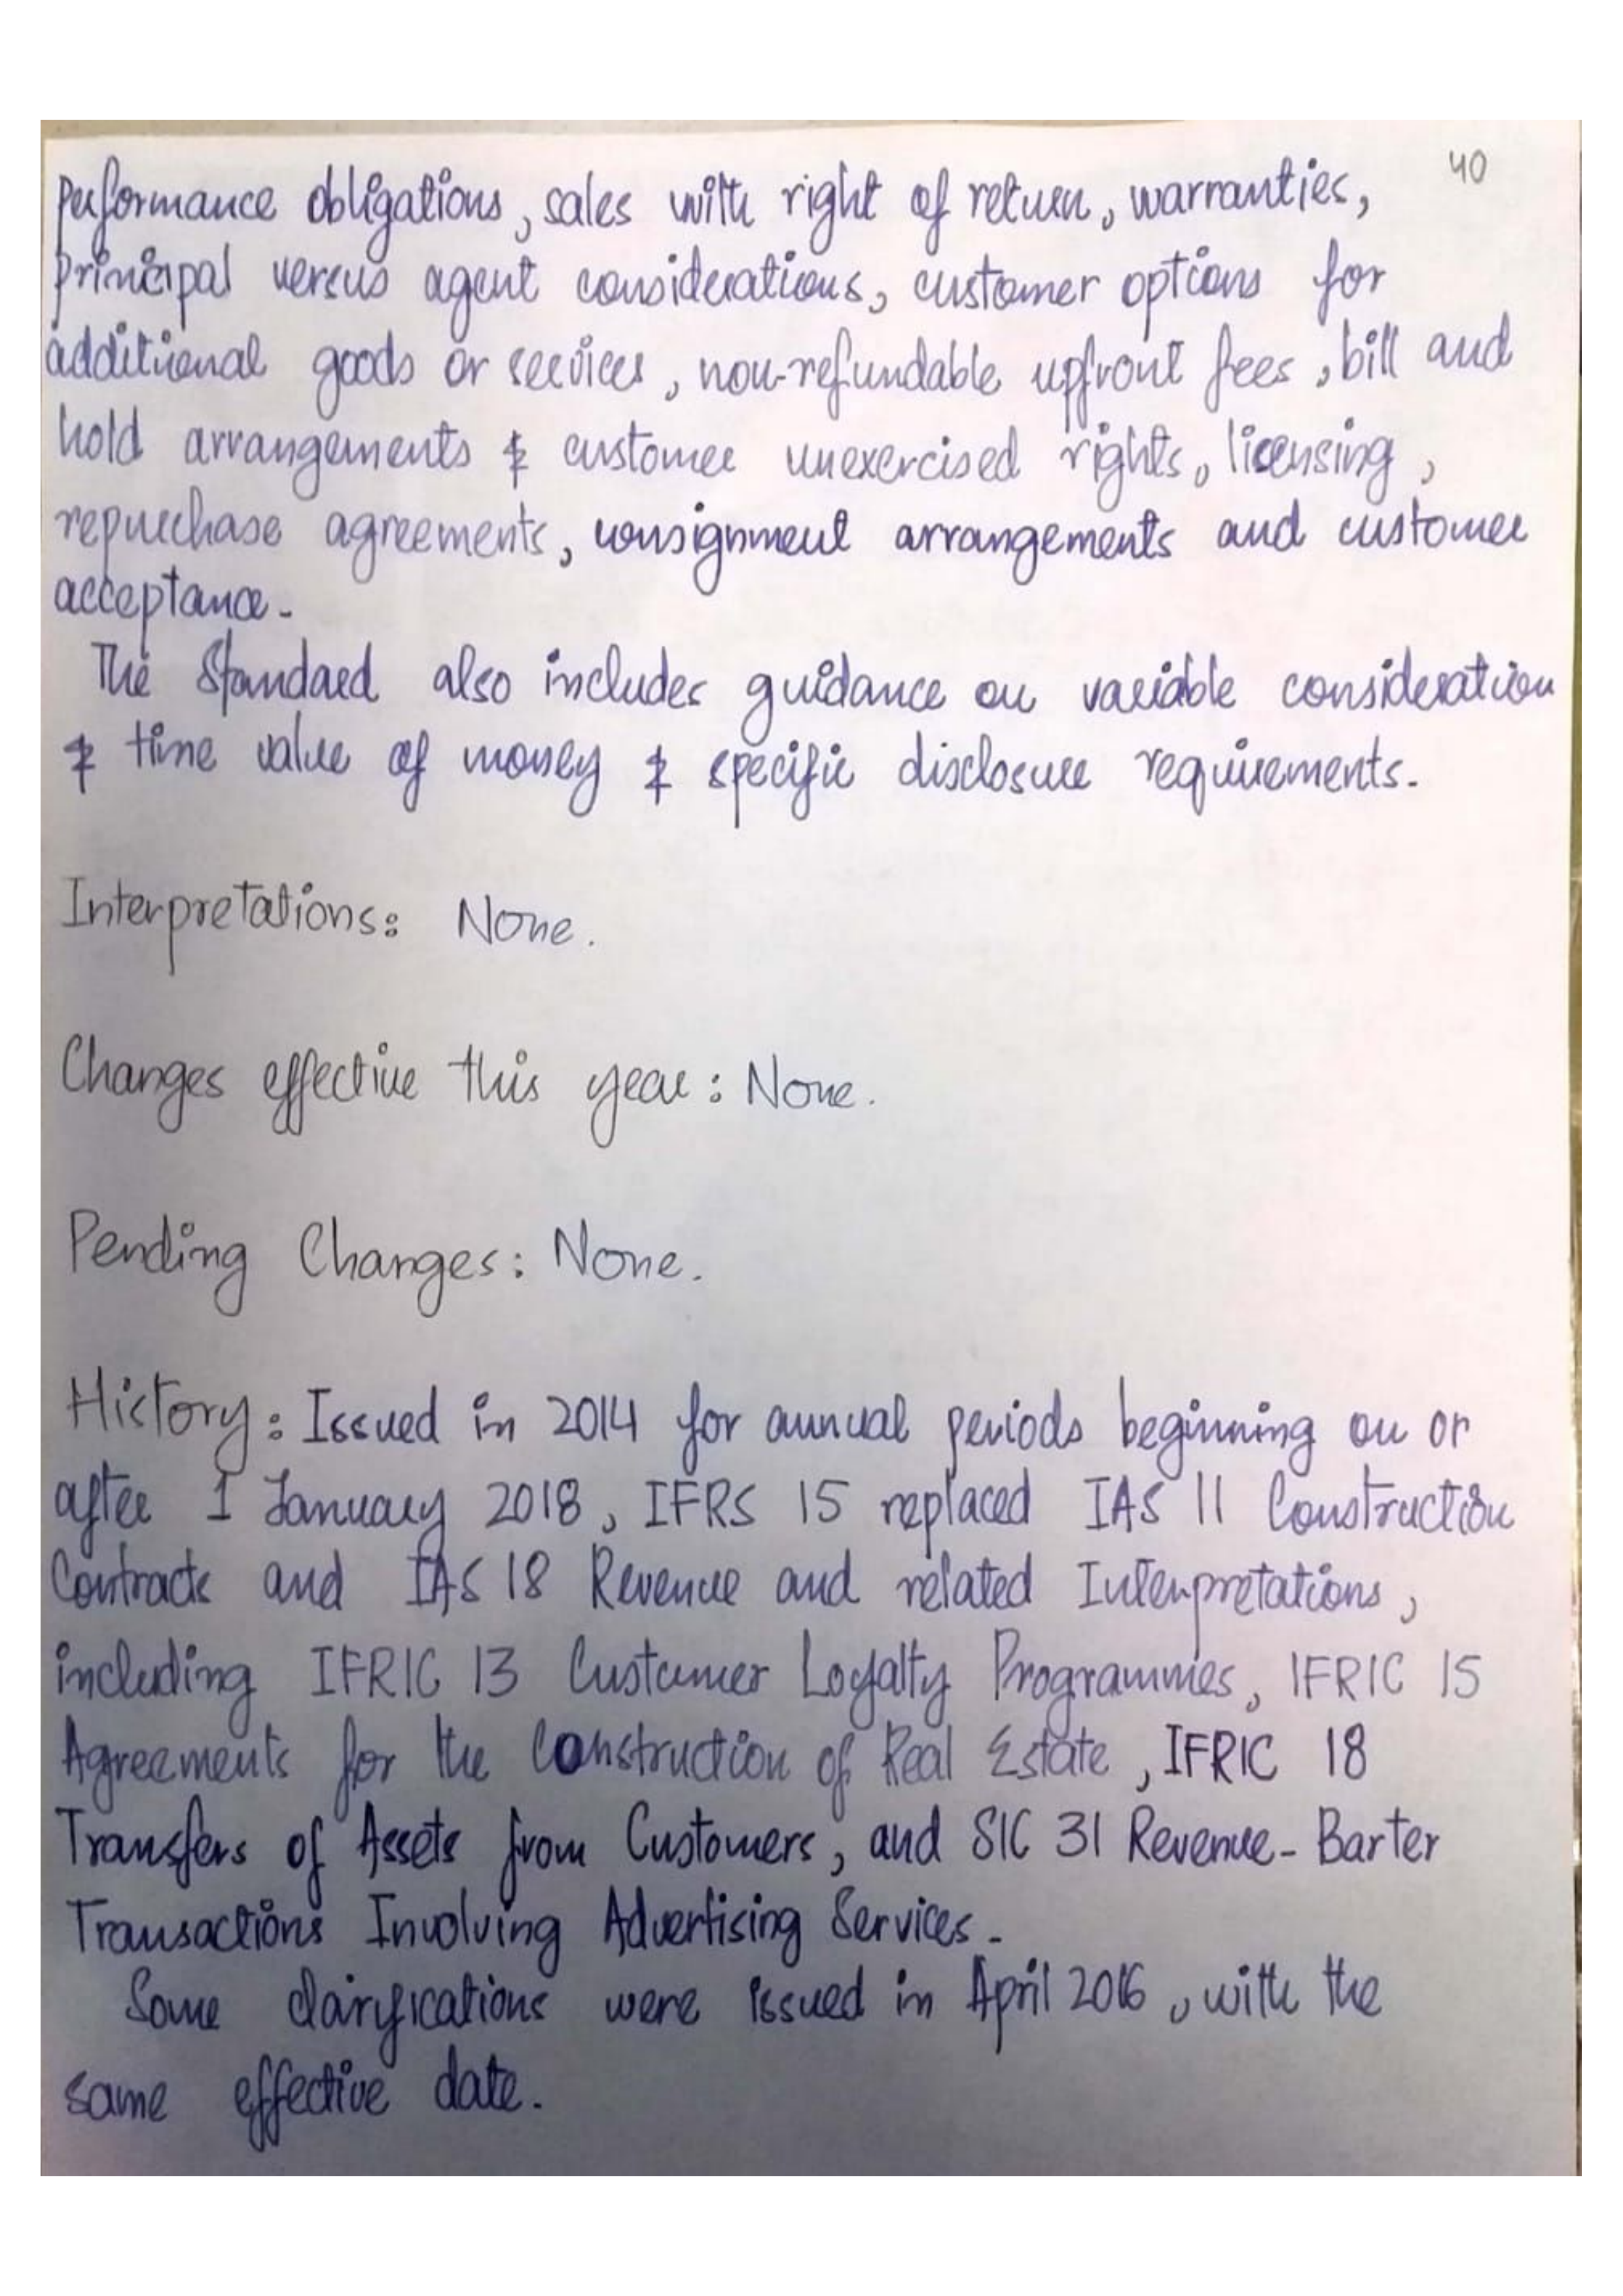 40
performance obligations, sales with right of return, warranties,
principal versus agent considerations, customer options for
additional goods or services, non-refundable upfront fees, bill and
hold arrangements & customer unexercised rights, licensing,
repurchase agreements, consignment arrangements and customer
acceptance.
The Standard also includes guidance on variable consideration
& time value of money & specific disclosure requirements.
Interpretations: None.
Changes effective this year: None.
Pending Changes: None.
History: Issued in 2014 for annual periods beginning on or
after 1 January 2018, IFRS 15 replaced IAS 11 Construction
Contracts and IAS 18 Revenue and related Interpretations,
including IFRIC 13 Customer Loyalty Programmes, IFRIC 15
Agreements for the Construction of Real Estate, IFRIC 18
Transfers of Assets from Customers, and SIC 31 Revenue- Barter
Transactions Involving Advertising Services.
Some clarifications were issued in April 2016, with the
same effective date.